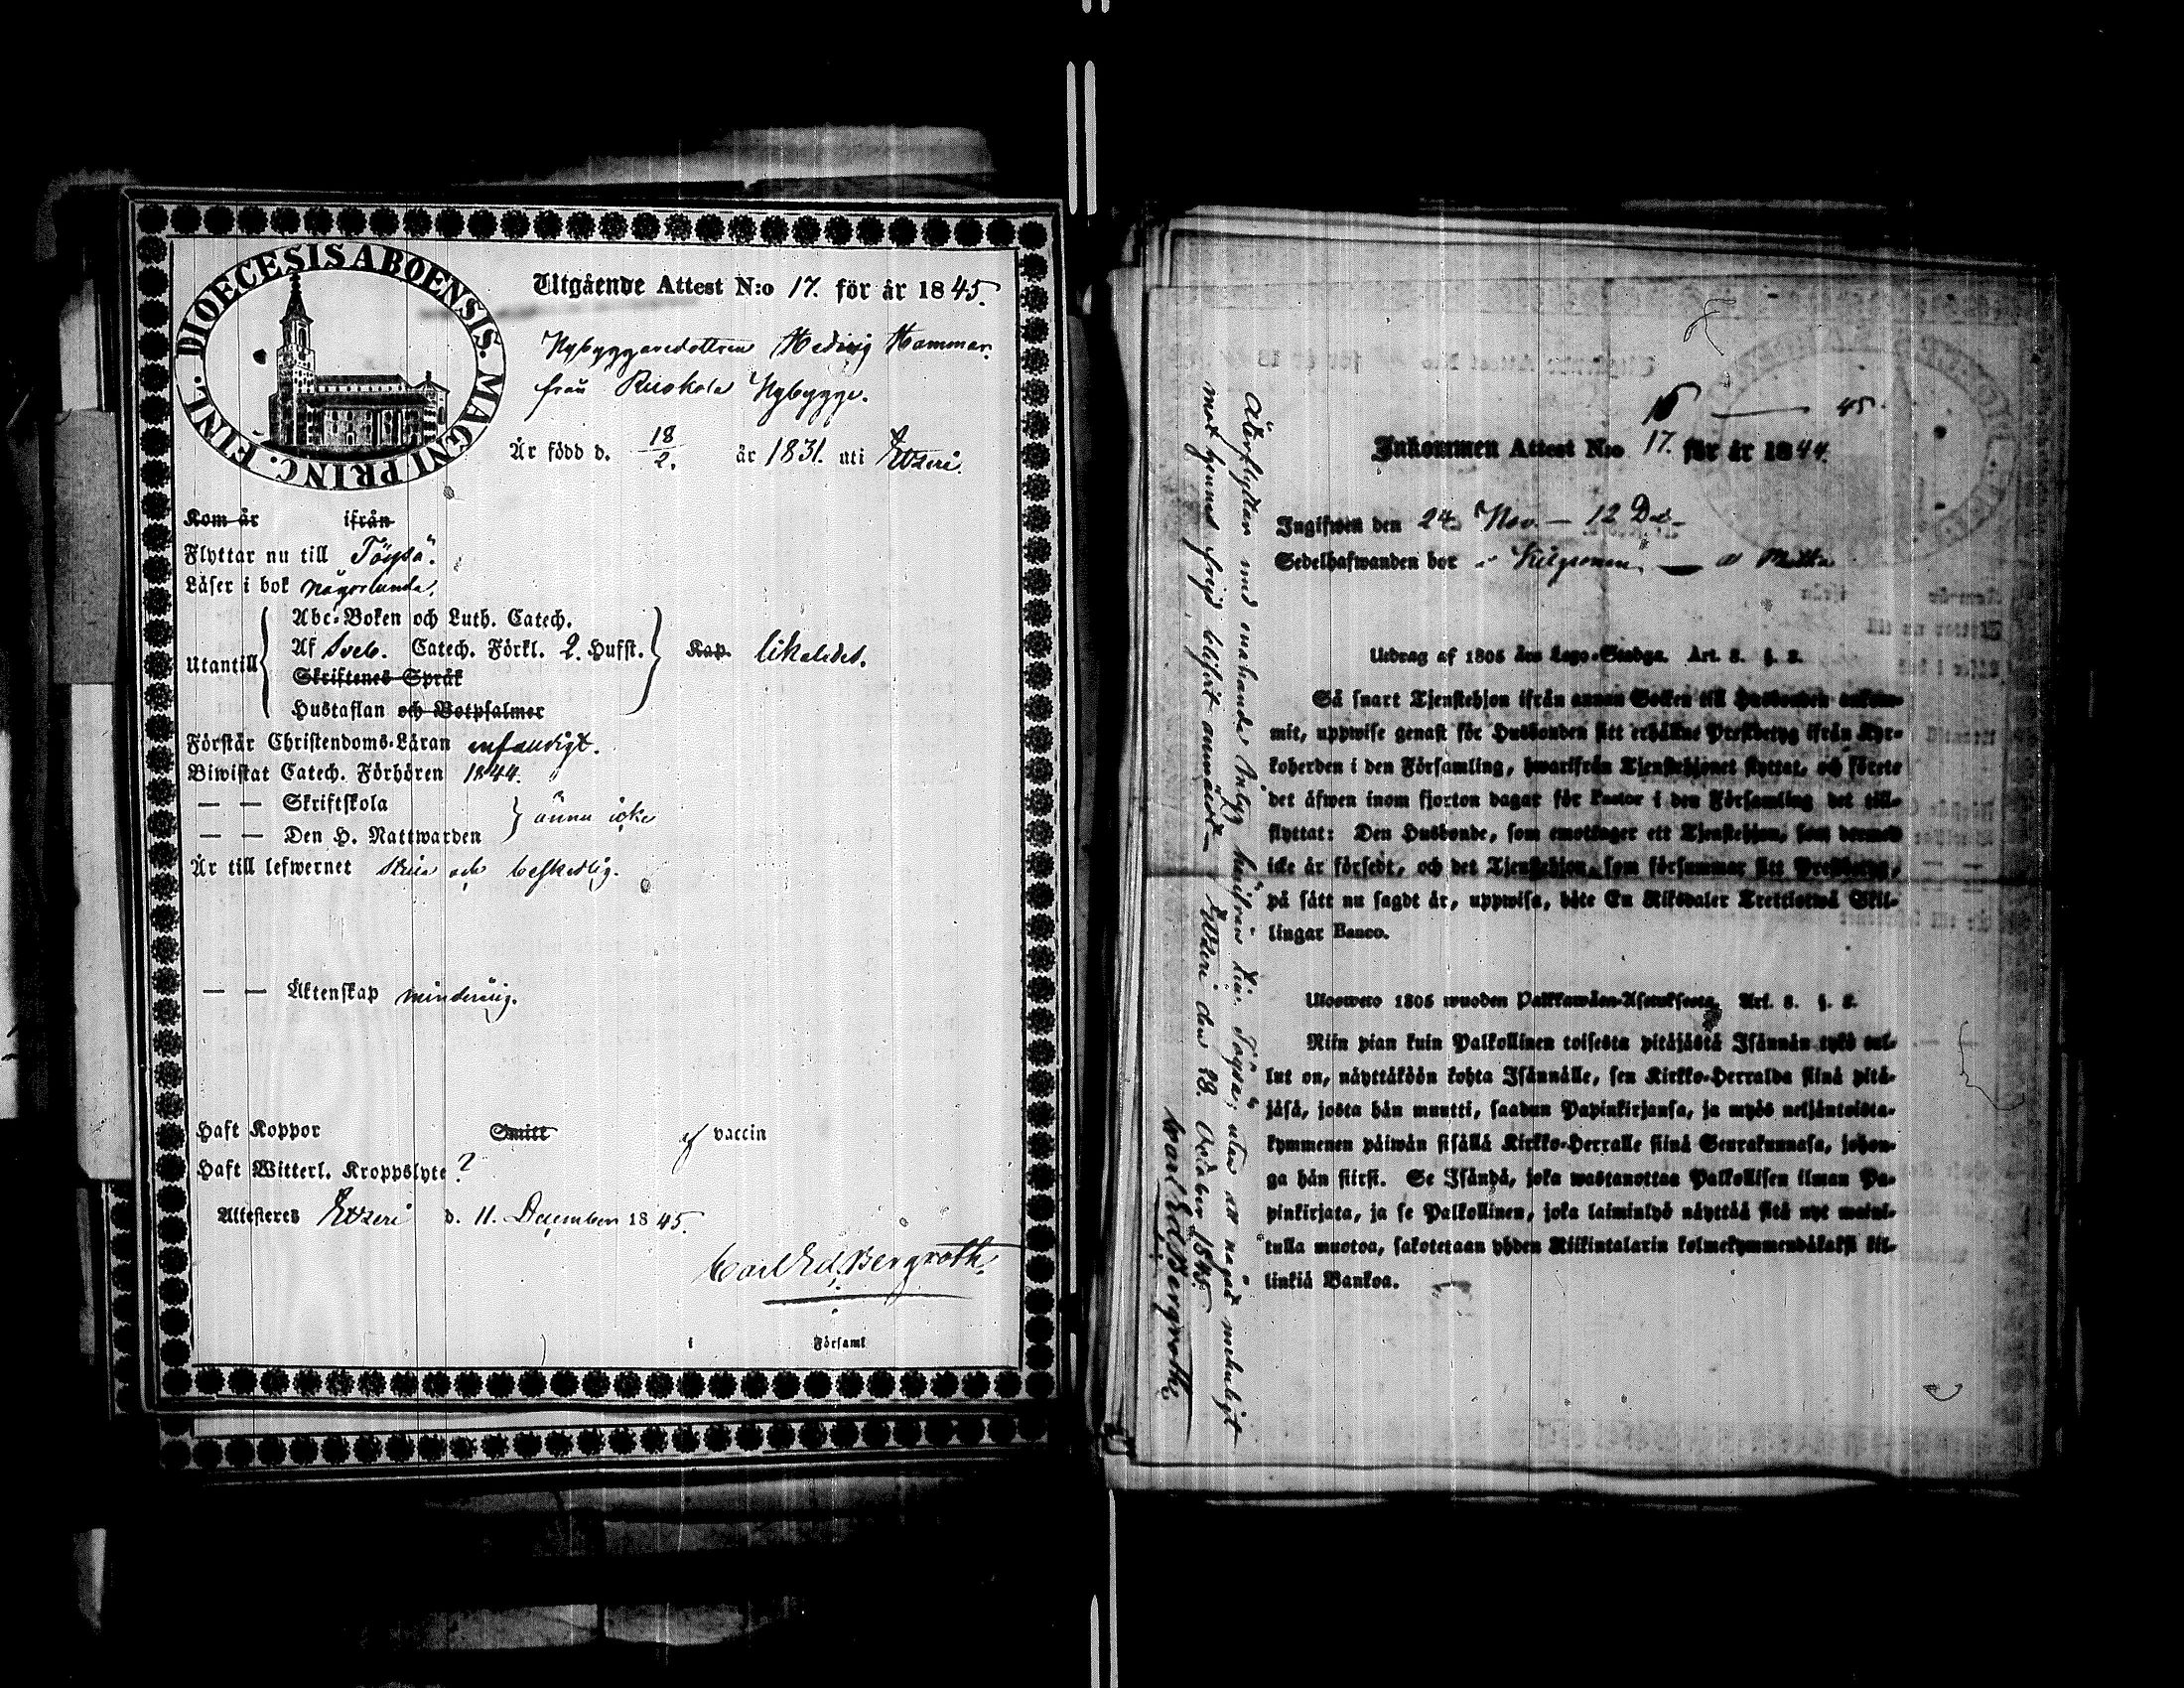 DIOECESIS ABOENSIS. MAGNI PRINC. FINL.
Utgående Attest N:o 17. för år 1845.
Nybyggaredottren Hedvig Hammar.
från Ruokola Nybygge.
Är född d. 18/2. år 1831. uti Etseri.
Kom år ifrån
Flyttar nu till Töysä.
Läser i bok någorlunda.
Utantill
Abc-Boken och Luth. Catech.
Af Sveb. Catech. Förkl. 2. Hufst. Kap. likaledes.
Skriftenes Språk
Hustaflan och Botpsalmer
Förstår Christendoms-Läran enfaldigt.
Biwistat Catech. Förhören 1844.
— — Skriftskola
— — Den H. Nattwarden ännu icke
Är till lefwernet stilla och beskedlig.
— — Äktenskap minderårig.
Haft Koppor Smitt af vaccin
Haft Witterl. Kroppslyte?
Attesteres Etseri d. 11. December 1845.
Carl Ed. Bergroth.
i Församl
45.
Inkommen Attest N:o 17. för år 1844.
Ingifwen den 24 Nov. — 12 Dec.
Sedelhafwanden bor
Utdrag af 1805 års Lego-Stadga. Art. 8. §. 2.
Så snart Tjenstehjon ifrån annan Socken till Husbonden ankom-
mit, uppwise genast för Husbonden sitt erhållne Prestbetyg ifrån Kyr-
koherden i den Församling, hwarifrån Tjenstehjonet flyttat, och förete
det äfwen inom fjorton dagar för Pastor i den Församling det till-
flyttat: Den Husbonde, som emottager ett Tjenstehjon, som dermed
icke är försedt, och det Tjenstehjon som försummar sitt Prestbetyg,
på sätt nu sagdt är, uppwisa, böte En Riksdaler Trettiotwå Skil-
lingar Banco.
Ulosweto 1805 wuoden Palkkawäen-Asetuksesta. Art. 8. §. 2.
Niin pian kuin Palkollinen toisesta pitäjästä Isännän tykö tul-
lut on, näyttäköön kohta Isännälle, sen Kirkko-Herralda siinä pitä-
jäsä, josta hän muutti, saadun Papinkirjansa, ja myös neljäntoista-
kymmenen päiwän sisällä Kirkko-Herralle siinä Seurakunnasa, johon-
ga hän siirsi. Se Isändä, joka wastanottaa Palkollisen ilman Pa-
pinkirjata, ja se Palkollinen, joka laiminlyö näyttää sitä nyt maini-
tulla muotoa, sakotetaan yhden Riikintalarin kolmekymmendäkaksi kil-
linkiä Bankoa.
Återflyttar med enahanda betyg härifrån till Töysä; utan att något menligt
mot hennes frejd blifvit anmärkt — Etseri den 23. October 1845.
Carl Ed. Bergroth.